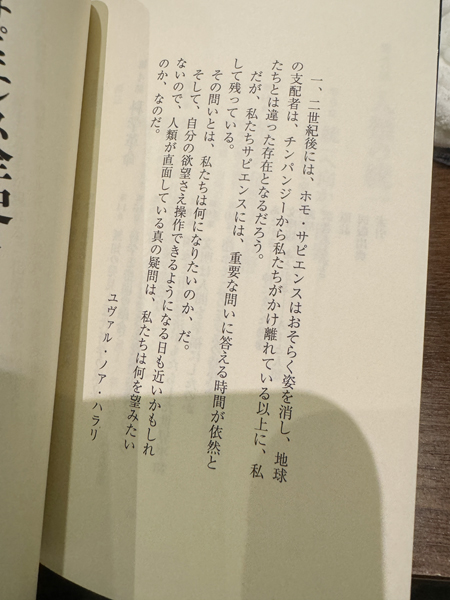 一、二世紀後には、ホモ・サピエンスはおそらく姿を消し、地球
の支配者は、チンパンジーから私たちがかけ離れている以上に、私
たちとは違った存在となるだろう。
だが、私たちサピエンスには、重要な問いに答える時間が依然と
して残っている。
その問いとは、私たちは何になりたいのか、だ。
そして、自分の欲望さえ操作できるようになる日も近いかもしれ
ないので、人類が直面している真の疑問は、私たちは何を望みたい
のか、なのだ。
ユヴァル・ノア・ハラリ
サピエンス全史